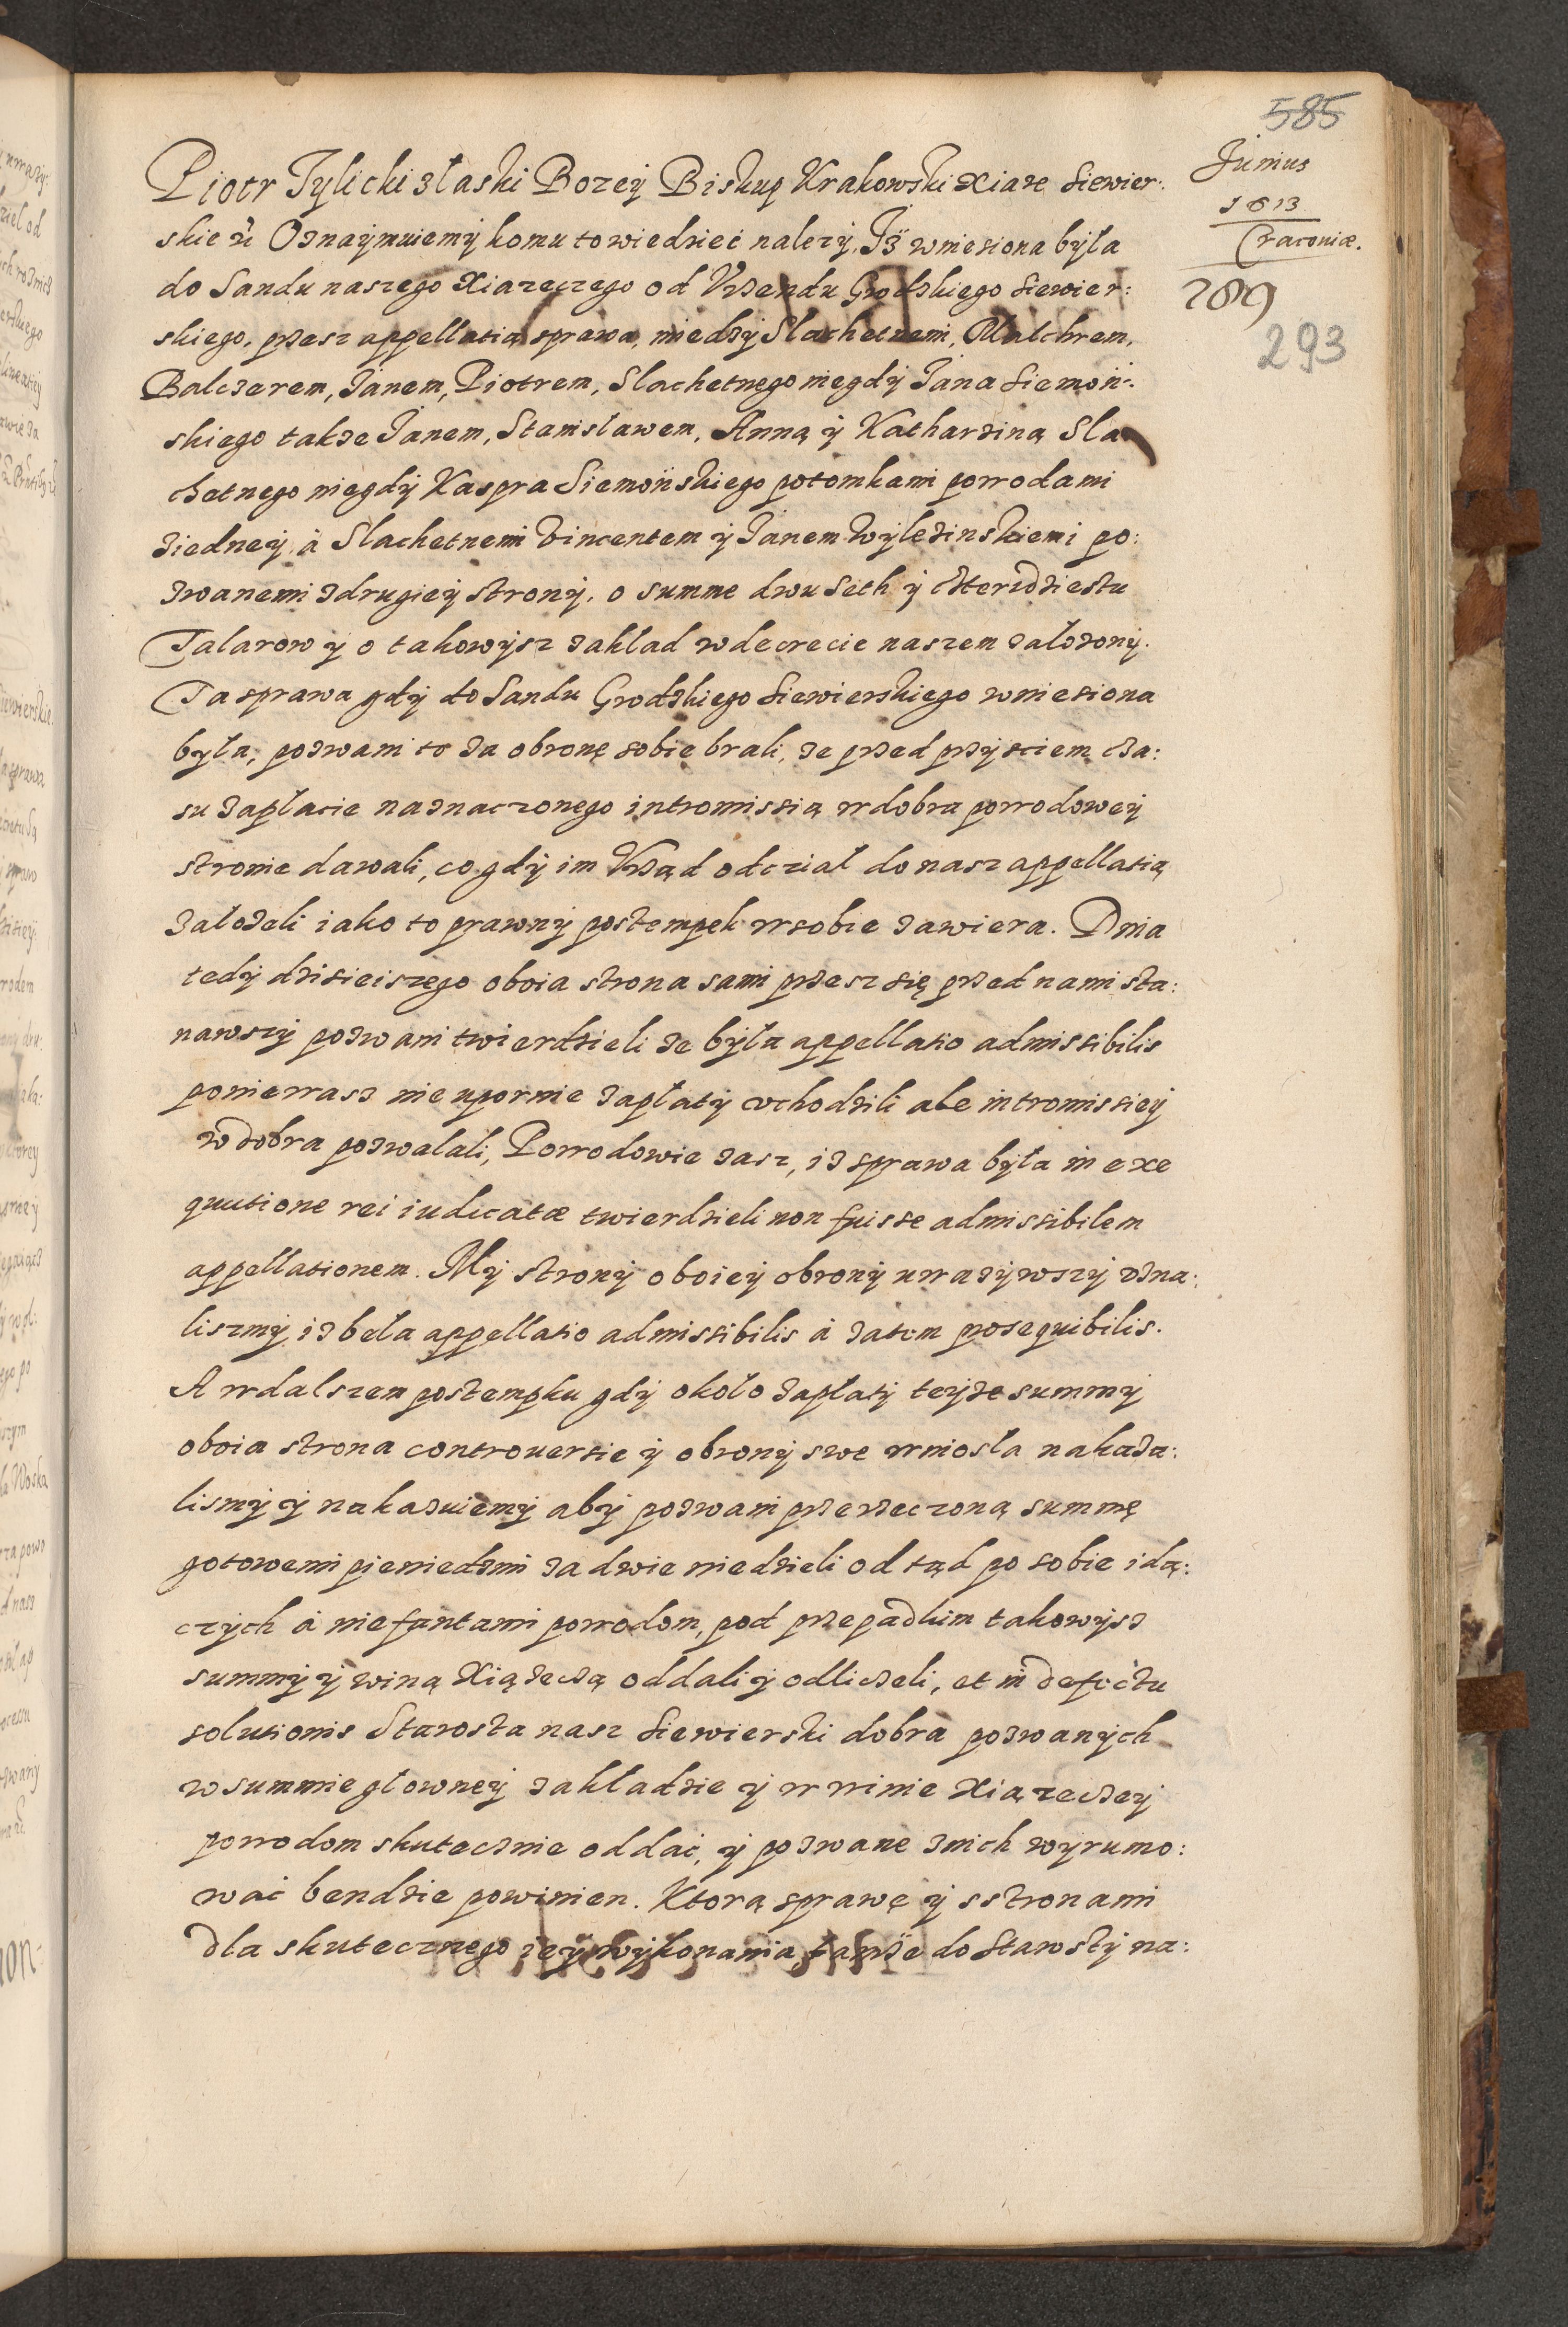 585
Junius
1613
Cracoviæ.
289
293
Piotr Tylicki złaski Bozey Biskup Krakowski Xiaze Siewier:
skie &c Oznaymuiemy komu to wiedziec nalezy, Iż wniesiona była
do Sandu naszego Xiazeczego od Vrzendu Grodzkiego Siewier:
skiego, przesz appellatią sprawa, miedzy Slachetnemi, Malchrem,
Balczerem, Janem, Piotrem, Slachetnego niegdy Jana Siemoń:
skiego takze Janem, Stanisławem, Anną y Katharziną Sla
chetnego niegdy Kaspra Siemońskiego potomkami powodami
ziedney, à Slachetnemi Vincentem y Janem Wylezinskiemi po:
zwanemi zdrugiey strony, o summe dwu seth y czterzdziestu
Talarow y o takowysz zakład w decrecie naszem załozony.
Ta sprawa gdy do Sandu Grodzkiego Siewierskiego wniesiona
była, pozwani to za obronę sobie brali, ze przed przysciem cza:
su zapłacie naznaczonego intromissią w dobra powodowey
stronie dawali, co gdy im Vrząd odcział do nasz appellatią
załozeli iako to prawny postempek w sobie zawiera. Dnia
tedy dzisieiszego oboia strona sami przesz się przed nami sta:
nawszy pozwani twierdzieli ze była appellatio admissibilis
poniewasz nie upornie zapłaty vchodzili ale intromissiey
w dobra pozwalali, Powodowie zasz, iz sprawa była in exe
quutione rei iudicatæ twierdzieli non fuisse admissibilem
appellationem. My strony oboiey obrony uwazywszy vzna:
liszmy iz beła appellatio admissibilis à zatem prosequibilis.
A w dalszem postempku gdy około zapłaty teyze summy
oboia strona controuersie y obrony swe wniosła nakaza:
lismy y nakazuiemy aby pozwani przerzeczoną summę
gotowemi pieniedzmi za dwie niedzieli od tąd po sobie idą:
czych à nie fantami powodom, pod przepadkim takowysz
summy y winą Xiązeczą oddali y odliczeli, et in defectu
solutionis Starosta nasz Siewierski dobra pozwanych
w summie głowney zakładzie y w winie Xiązeczey
powodom skutecznie oddać, y pozwane znich wyrumo:
wać bendzie powinien. Ktorą sprawę y s stronami
dla skutecznego iey wykonania, tamże do Starosty na: